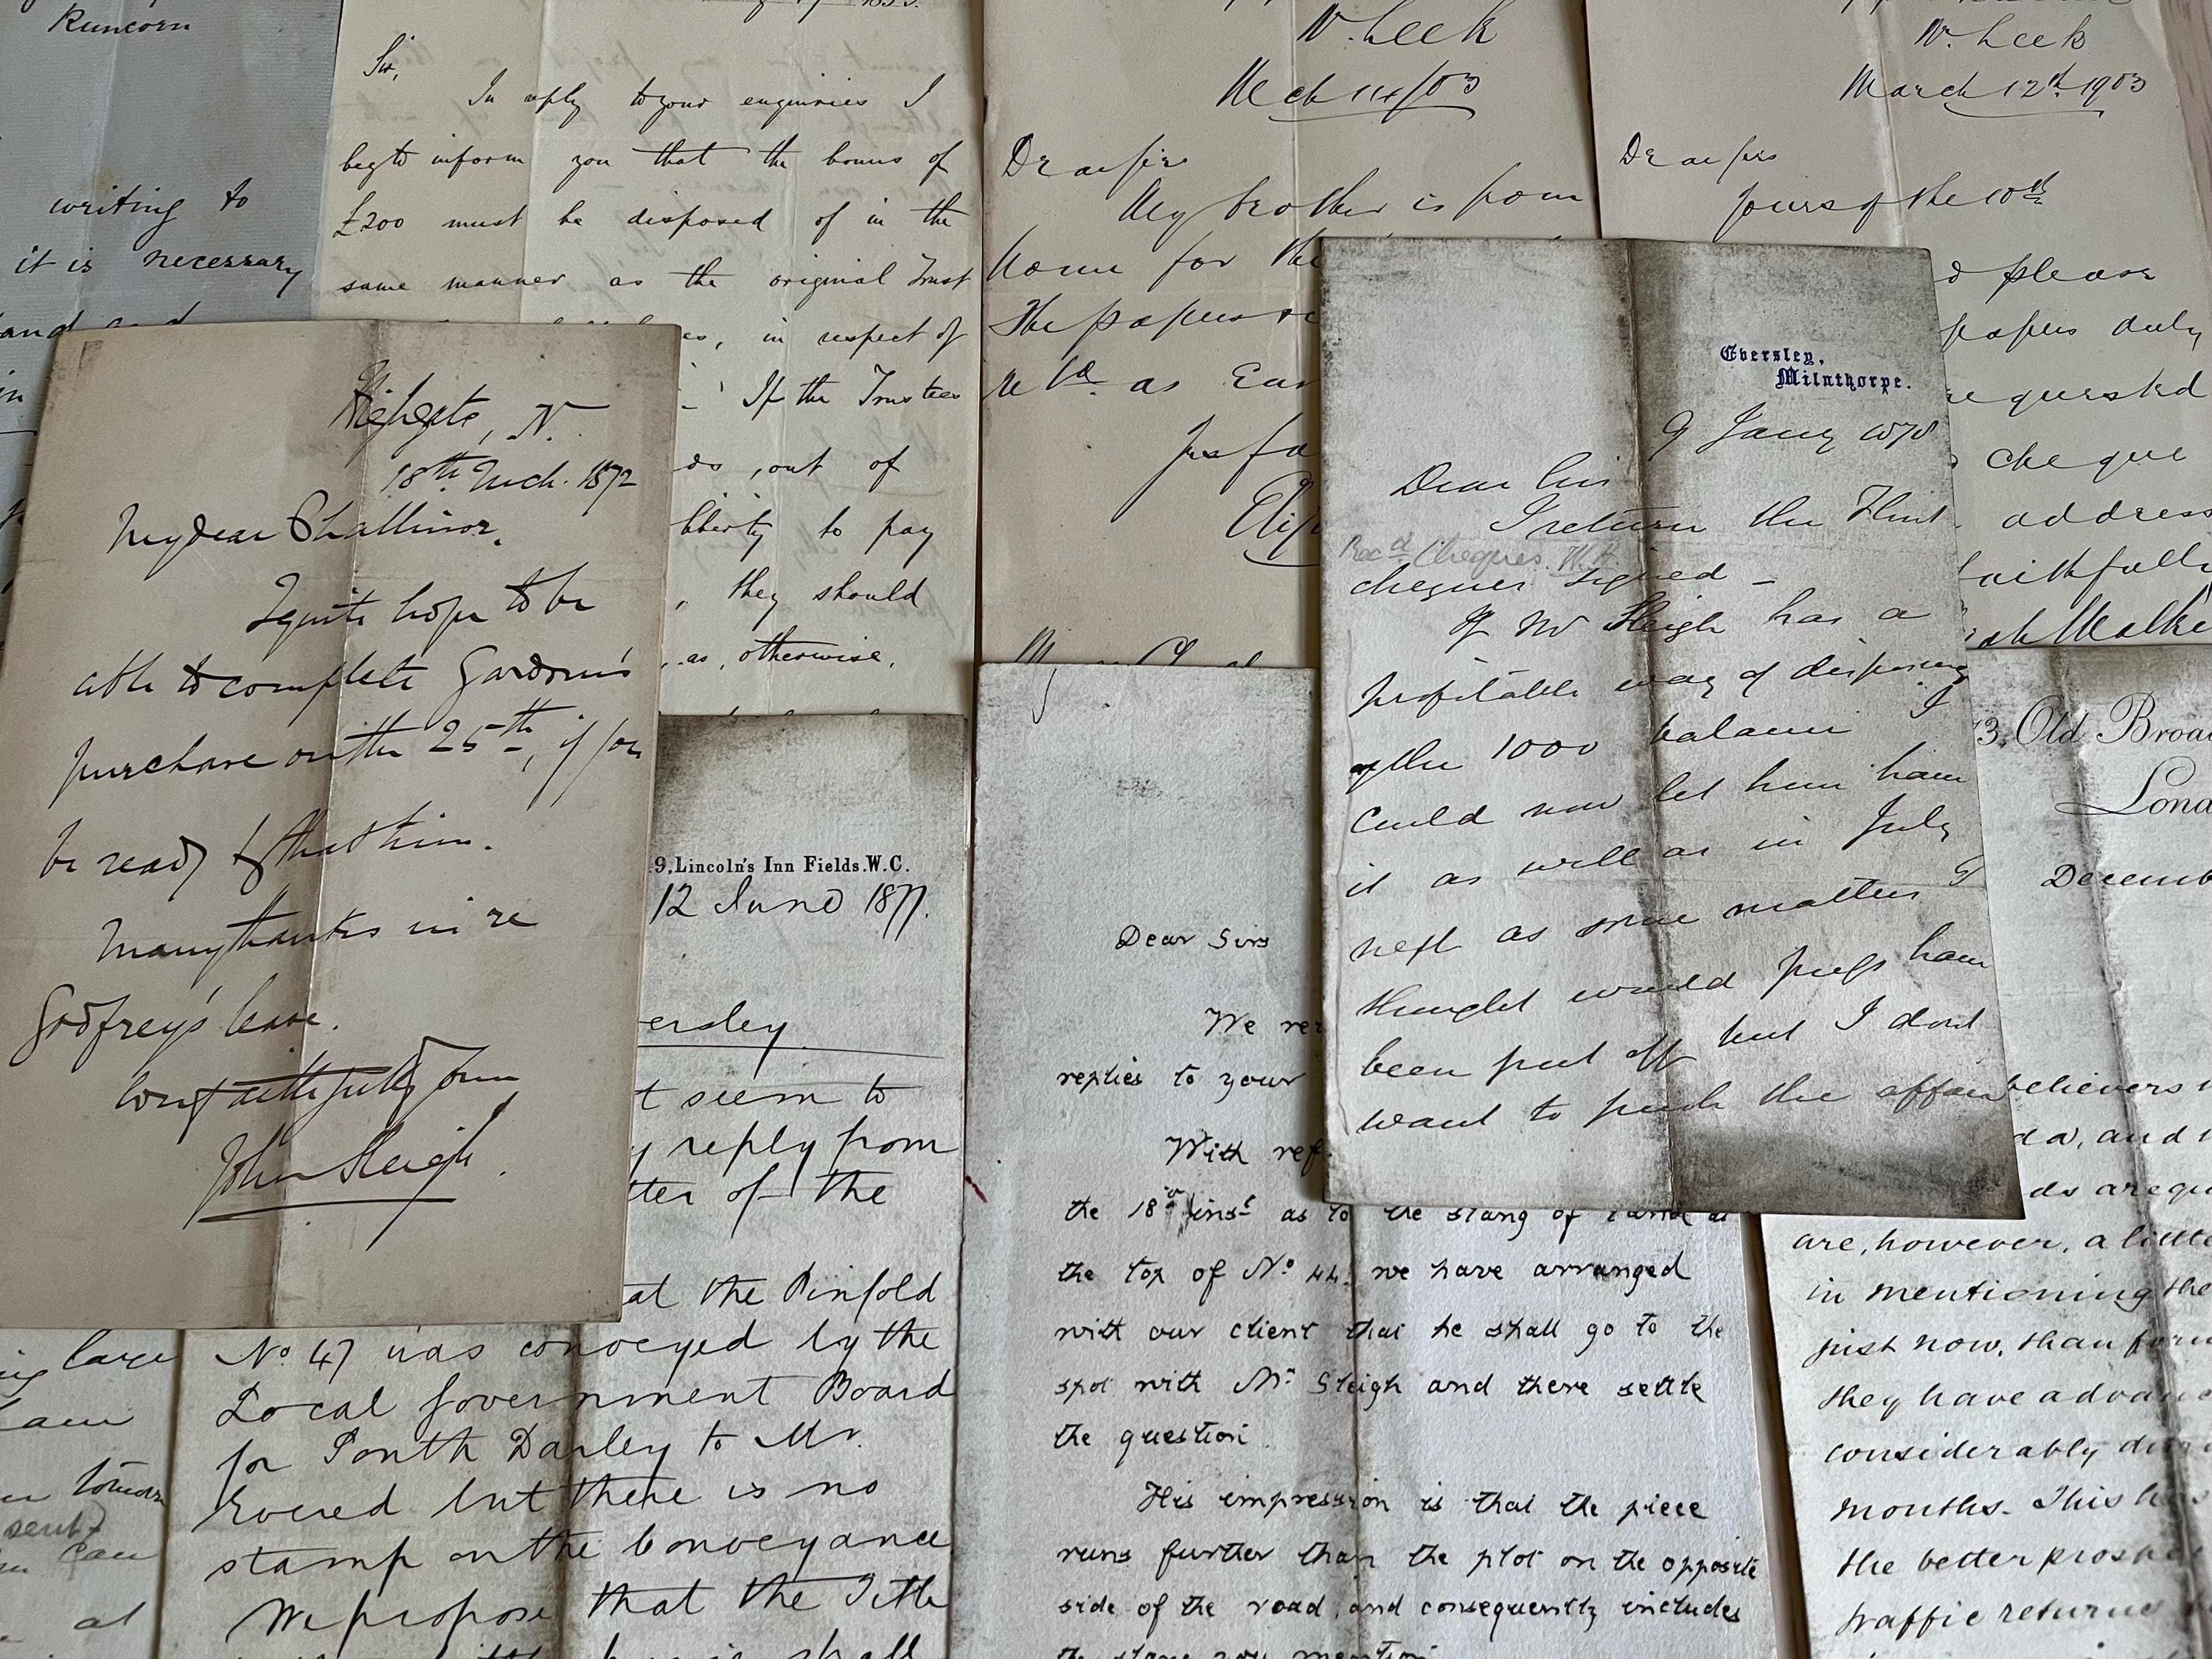 Runcorn
writing to
it is necessary
and and
in
Sir,
In reply to your enquiries I
beg to inform you that the bonus of
£200 must be disposed of in the
same manner as the original Trust
es, in respect of
If the Trustees
ds, out of
liberty to pay
, they should
as, otherwise,
W. Leek
Mch 14/03
Dear Sirs
My brother is from
home for the
The papers
as
Yrs fa
Eliz
W. Leek
March 12th 1903
Dear Sirs
Yours of the 10th
d please
papers duly
requested
cheque
address
faithfully
ah Walke
Highgate, N.
18th Mch. 1872
My dear Challinor,
I quite hope to be
able to complete Gardom's
purchase on the 25th, if you
be ready by that time.
Many thanks in re
Godfrey's lease.
faithfully
John Sleigh.
Eversley,
Milnthorpe.
9 Jany 1878
Dear Sir
I return the Flint
Recd Cheques. W.H.
cheques signed –
If Mr Sleigh has a
profitable way of disposing
of the 1000 balance I
could now let him have
it as well as in July
next as some matters I
thought would have
been put off but I dont
want to push the affair
9, Lincoln's Inn Fields. W.C.
12 June 1877.
ersley
t seem to
y reply from
tter of the
at the Pinfold
No 47 was conveyed by the
Local Government Board
for South Darley to Mr.
but there is no
stamp on the Conveyance
We propose that the Title
shall
Dear Sirs
We re
replies to your
With ref
the 18th inst as to the slang of land at
the top of No 44. we have arranged
with our client that he shall go to the
spot with Mr Sleigh and there settle
the question.
His impression is that the piece
runs further than the plot on the opposite
side of the road, and consequently includes
the slang you mention
3, Old Broa
Lond
Decemb
believers
da, and
ds are qu
are, however, a little
in mentioning the
just now, than form
they have advan
considerably du
months. This h
the better prospe
traffic returns
large
am
tomorrow
sent
can
at